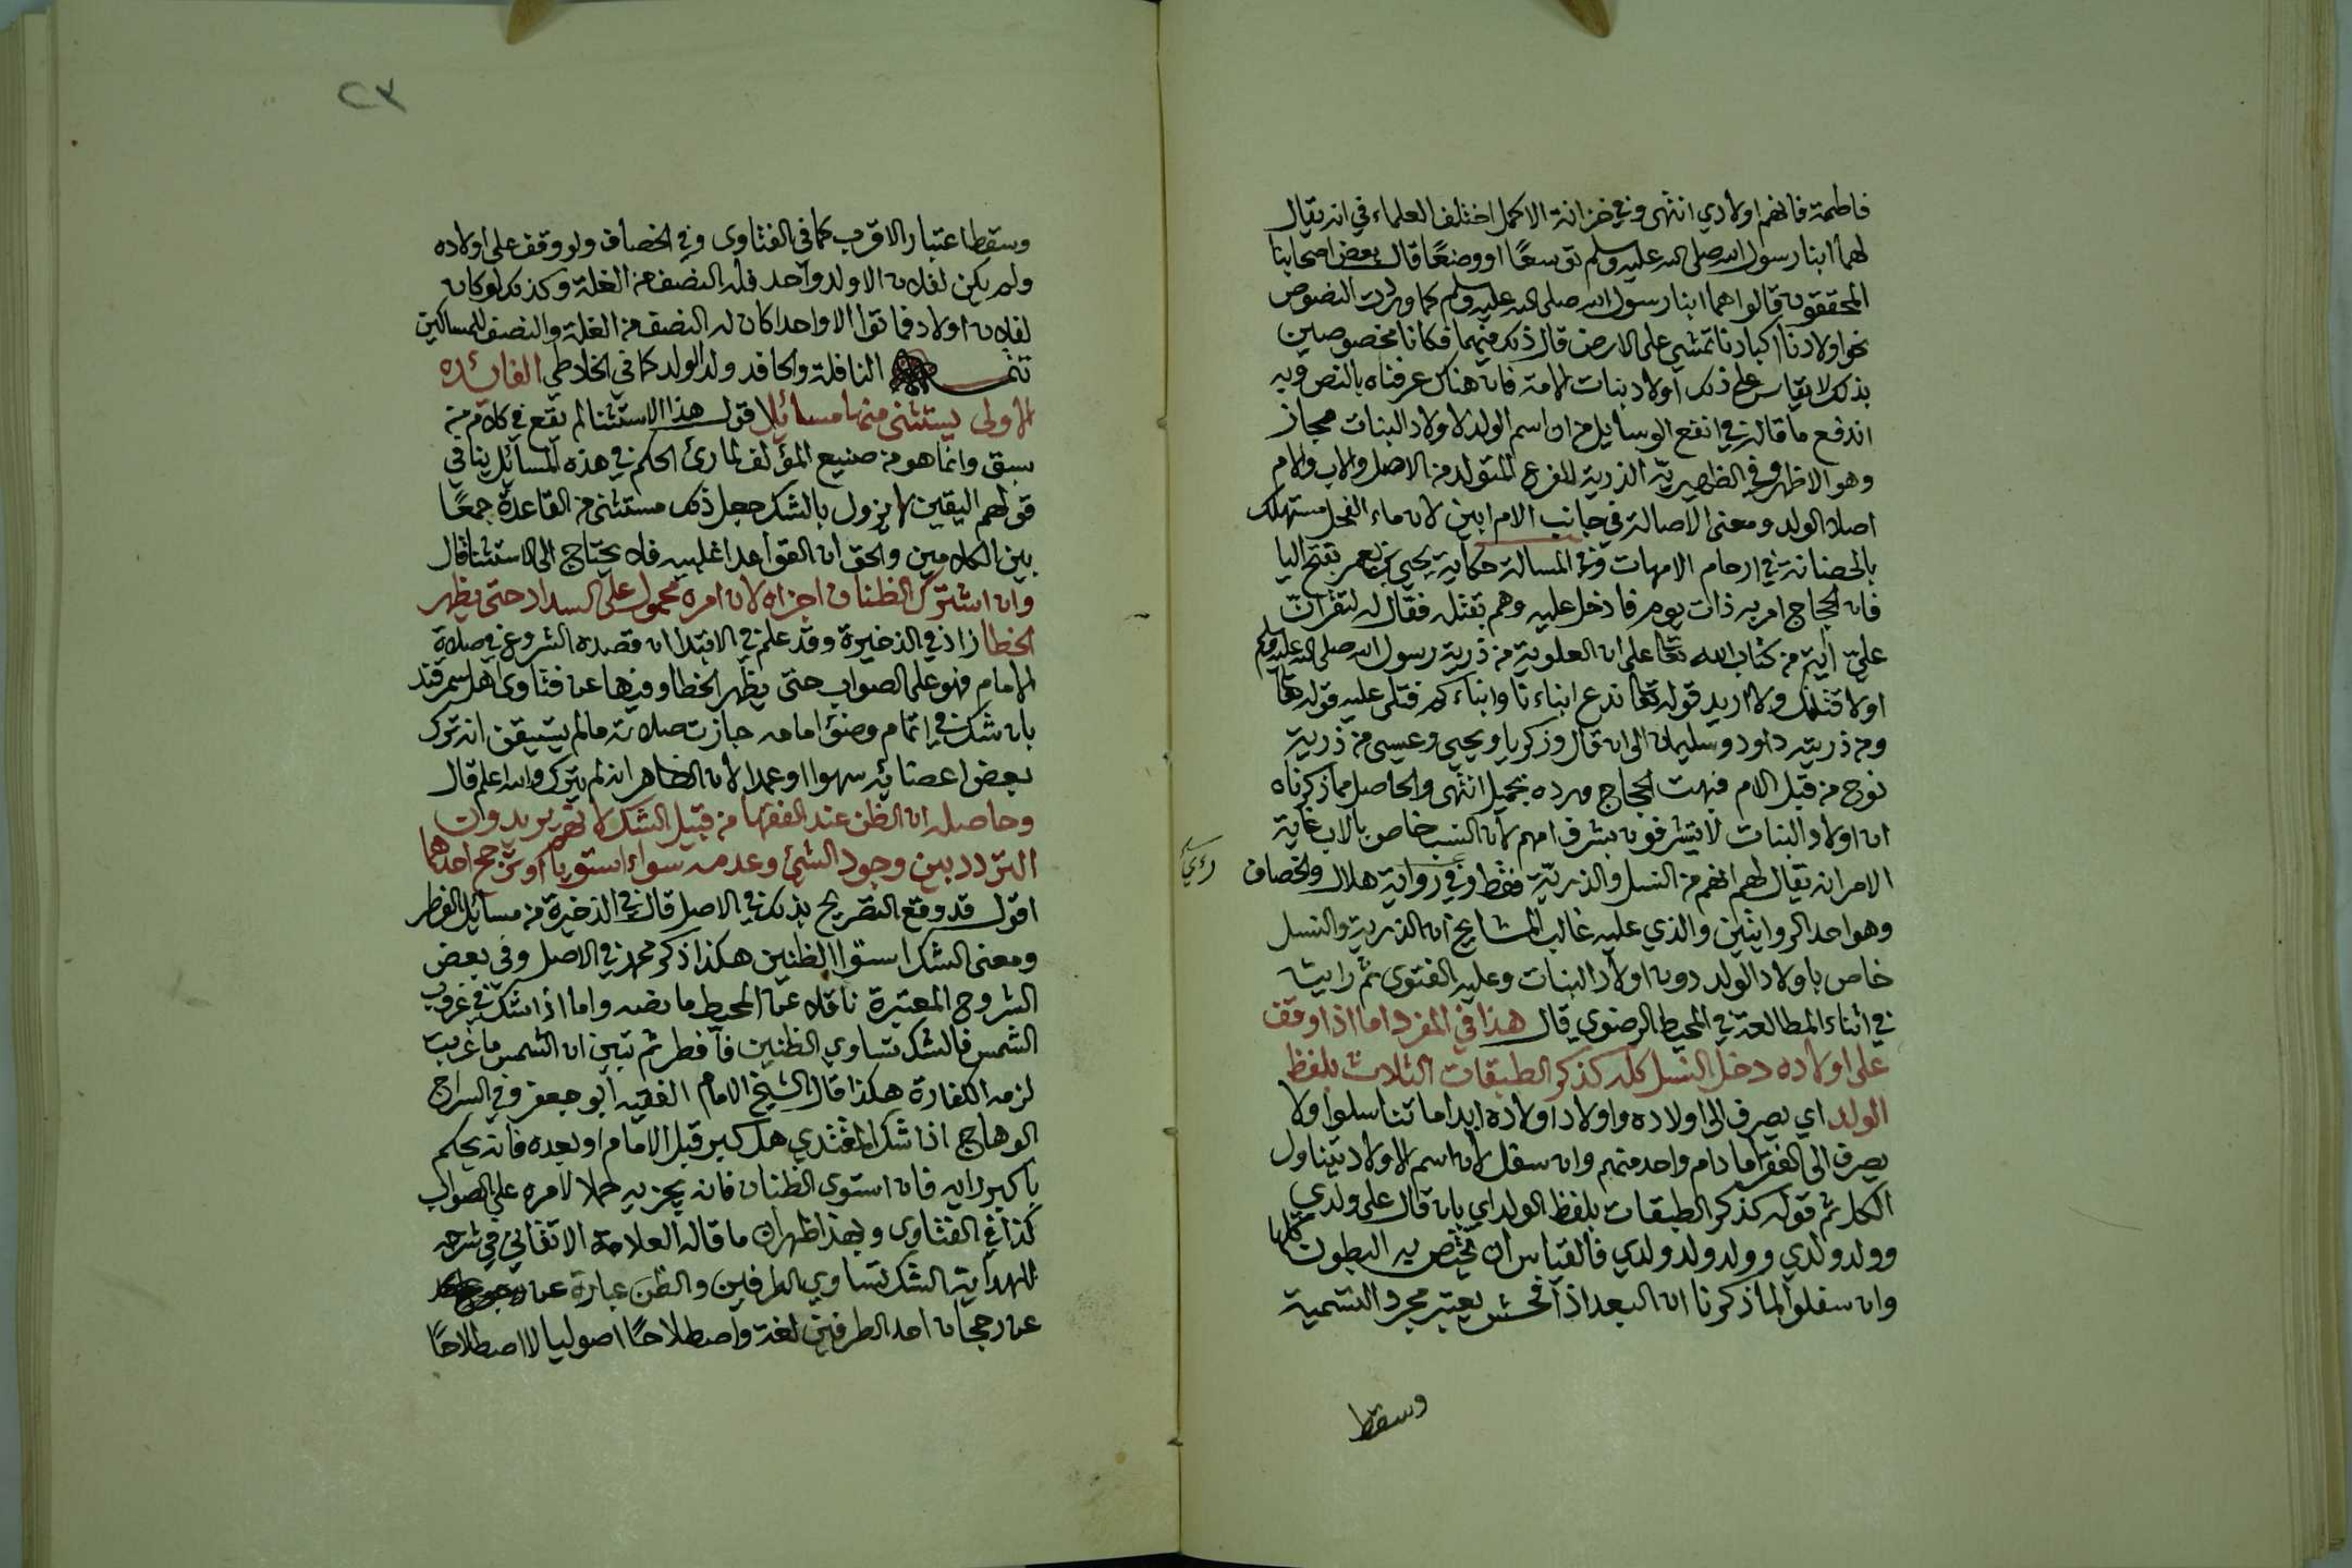 فاطمة فانهم اولادي انتهى وفي خزانة الاكمل اختلف العلماء في انه يقال
لهما ابنا رسول الله صلى الله عليه وسلم توسعًا او وضعًا قال بعض اصحابنا
المحققون قالوا هما ابنا رسول الله صلى الله عليه وسلم كما وردت النصوص
نحو اولادنا اكبادنا تمشي على الارض قال ذلك فيهما فكانا مخصوصين
بذلك لا يقاس على ذلك اولاد بنات الامة فان هناك عرفناه بالنص وبه
اندفع ما قاله في انفع الوسايل من ان اسم الولد لاولاد البنات مجاز
وهو الاظهر وفي الظهيرية الذرية للفرع المتولد من الاصل والاب والام
اصلا الولد ومعنى الاصالة في جانب الام ابين لان ماء الفحل مستهلك
بالحضانة في ارحام الامهات وفي المسالة حكاية يحيى بن يعمر بفتح اليا
فان الحجاج امر به ذات يوم فادخل عليه وهم بقتله فقال له لتقرانّ
عليّ آية من كتاب الله تعالى على ان العلوية من ذرية رسول الله صلى الله عليه وسلم
اولاقتلنك ولا اريد قوله تعالى ندع ابناءنا وابناءكم فتلى عليه قوله تعالى
ومن ذريته داود وسليمان الى ان قال وزكريا ويحيى وعيسى من ذرية
نوح من قبل الام فبهت الحجاج ورده بجميل انتهى والحاصل مما ذكرناه
ان اولاد البنات لا يتشرفون بشرف امهم لان النسب خاص بالاب غاية
الامر انه يقال لهم انهم من النسل والذرية فقط وفي رواية هلال والخصاف
وهو احد الروايتين والذي عليه غالب المشايخ ان الذرية والنسل
خاص باولاد الولد دون اولاد البنات وعليه الفتوى ثم رايت
في اثناء المطالعة في المحيط الرضوي قال هذا في المفرد اما اذا وقف
على اولاده دخل النسل كله كذكر الطبقات الثلاث بلفظ
الولد اي يصرف الى اولاده واولاد اولاده ابدا ما تناسلوا ولا
يصرف الى الفقرا ما دام واحد منهم وان سفل لان اسم الاولاد يتناول
الكل ثم قوله كذكر الطبقات بلفظ الولد اي بان قال على ولدي
وولد ولدي وولد ولد ولدي فالقياس ان يختص به البطون كلها
وان سفلوا لما ذكرنا ان البعد اذا فحش يعتبر مجرد التسمية
وسقط
٢٣
وسقط اعتبار الاقرب كما في الفتاوى وفي الخصاف ولو وقف على اولاده
ولم يكن لفلان الا ولد واحد فله النصف من الغلة وكذلك لو كان
لفلان اولاد فماتوا الا واحدا كان له النصف من الغلة والنصف للمساكين
النافلة والحافد ولد الولد كما في الخلاطي الفائده
الاولى يستثنى منها مسائل اقول هذا الاستثنا لم يقع في كلام من
سبق وانما هو من صنيع المؤلف لما رئ الحكم في هذه المسائل ينافي
قولهم اليقين لا يزول بالشك جعل ذلك مستثنى من القاعدة جمعًا
بين الكلامين والحق ان القواعد اغلبيه فلا يحتاج الى الاستثنا قال
وان اشترك الظنان اجزاه لان امره محمول على السداد حتى يظهر
الخطا زاد في الذخيرة وقد علم في الابتدا ان قصده الشروع في صلاة
الامام فهو على الصواب حتى يظهر الخطا وفيها عن فتاوى اهل سمرقند
بان شك في اتمام وضوء امامه جازت صلاته ما لم يتيقن انه ترك
بعض اعضائه سهوا او عمدا لان الظاهر انه لم يترك والله اعلم قال
وحاصله ان الظن عند الفقها من قبيل الشك لانهم يريدون
التردد بين وجود الشئ وعدمه سواء استويا او ترجح احدهما
اقول قد وقع التصريح بذلك في الاصل قال في الذخيرة من مسائل الفطر
ومعنى الشك استوا الظنين هكذا ذكر محمد في الاصل وفي بعض
الشروح المعتبرة ناقلا عن المحيط ما نصه واما اذا شك في غروب
الشمس فالشك تساوي الظنين فافطر ثم تبين ان الشمس ما غربت
لزمه الكفارة هكذا قال الشيخ الامام الفقيه ابو جعفر وفي السراج
الوهاج اذا شك المقتدي هل كبر قبل الامام او بعده فانه يحكم
باكبر رايه فان استوى الظنان فانه يجزيه حملا لامره على الصواب
كذا في الفتاوى وبهذا ظهر ان ما قاله العلامة الاتقاني في شرحه
للهداية الشك تساوي الطرفين والظن عبارة عن
عن رجحان احد الطرفين لغة واصطلاحًا اصوليا لا اصطلاحًا